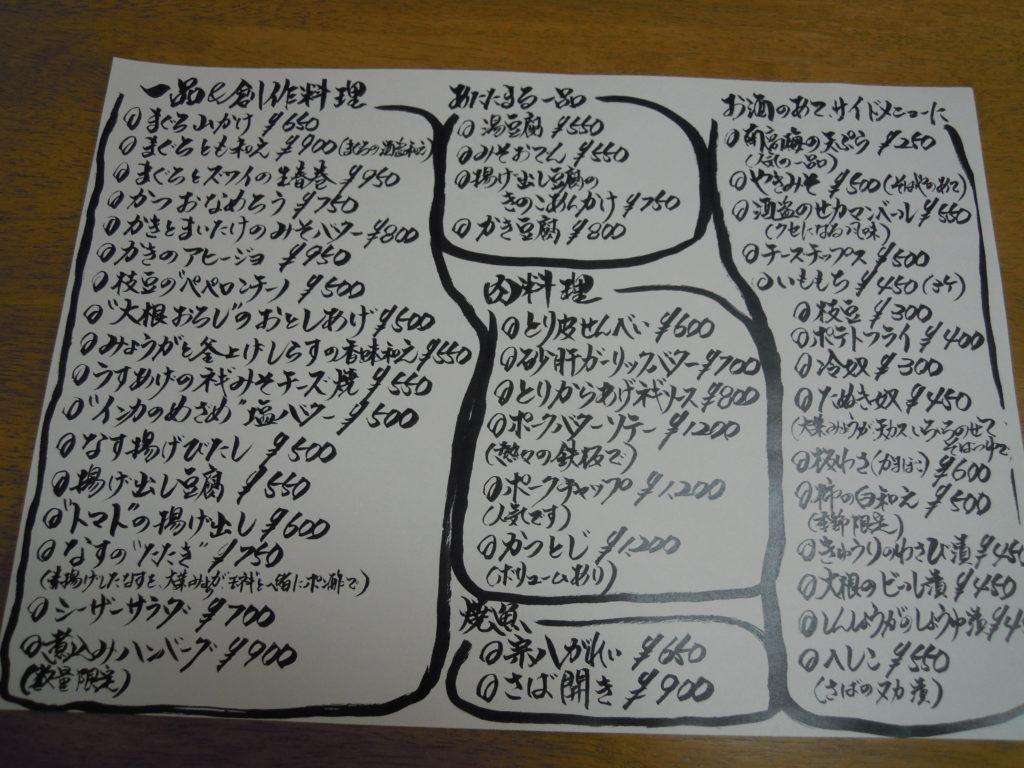 一品&創作料理
まぐろ山かけ ¥650
まぐろとも和え ¥900(まぐろの酒盗和え)
まぐろとズワイの生春巻 ¥950
かつおなめろう ¥750
かきとまいたけのみそバター ¥800
かきのアヒージョ ¥950
枝豆のペペロンチーノ ¥500
"大根おろし"のおとしあげ ¥500
みょうがと釜上げしらすの香味和え ¥550
うすあげのネギみそチーズ焼 ¥550
"インカのめざめ"塩バター ¥500
なす揚げびたし ¥500
揚げ出し豆腐 ¥550
"トマト"の揚げ出し ¥600
なすの"たたき" ¥750
(素揚げしたなすを、大葉みょうが玉ネギと一緒にポン酢で)
シーザーサラダ ¥700
煮込みハンバーグ ¥900
(数量限定)
あたたまる一品
湯豆腐 ¥550
みそおでん ¥550
揚げ出し豆腐の
きのこあんかけ ¥750
かき豆腐 ¥800
肉料理
とり皮せんべい ¥600
砂肝ガーリックバター ¥700
とりからあげネギソース ¥800
ポークバターソテー ¥1200
(熱々の鉄板で)
ポークチャップ ¥1,200
(人気です)
かつとじ ¥1,200
(ボリュームあり)
焼魚
宗八がれい ¥650
さば開き ¥900
お酒のあて、サイドメニューに
の天ぷら ¥250
(人気の一品)
やきみそ ¥500(そばやのあて)
酒盗のせカマンベール ¥550
(クセになる風味)
チーズチップス ¥500
いももち ¥450(3ケ)
枝豆 ¥300
ポテトフライ ¥400
冷奴 ¥300
たぬき奴 ¥450
(大葉みょうが天カスいろいろのせて
そばつゆで)
板わさ(かまぼこ) ¥600
柿の白和え ¥500
(季節限定)
きゅうりのわさび漬 ¥450
大根のビール漬 ¥450
しんしょうがのしょうゆ漬 ¥4
へしこ ¥550
(さばのヌカ漬)